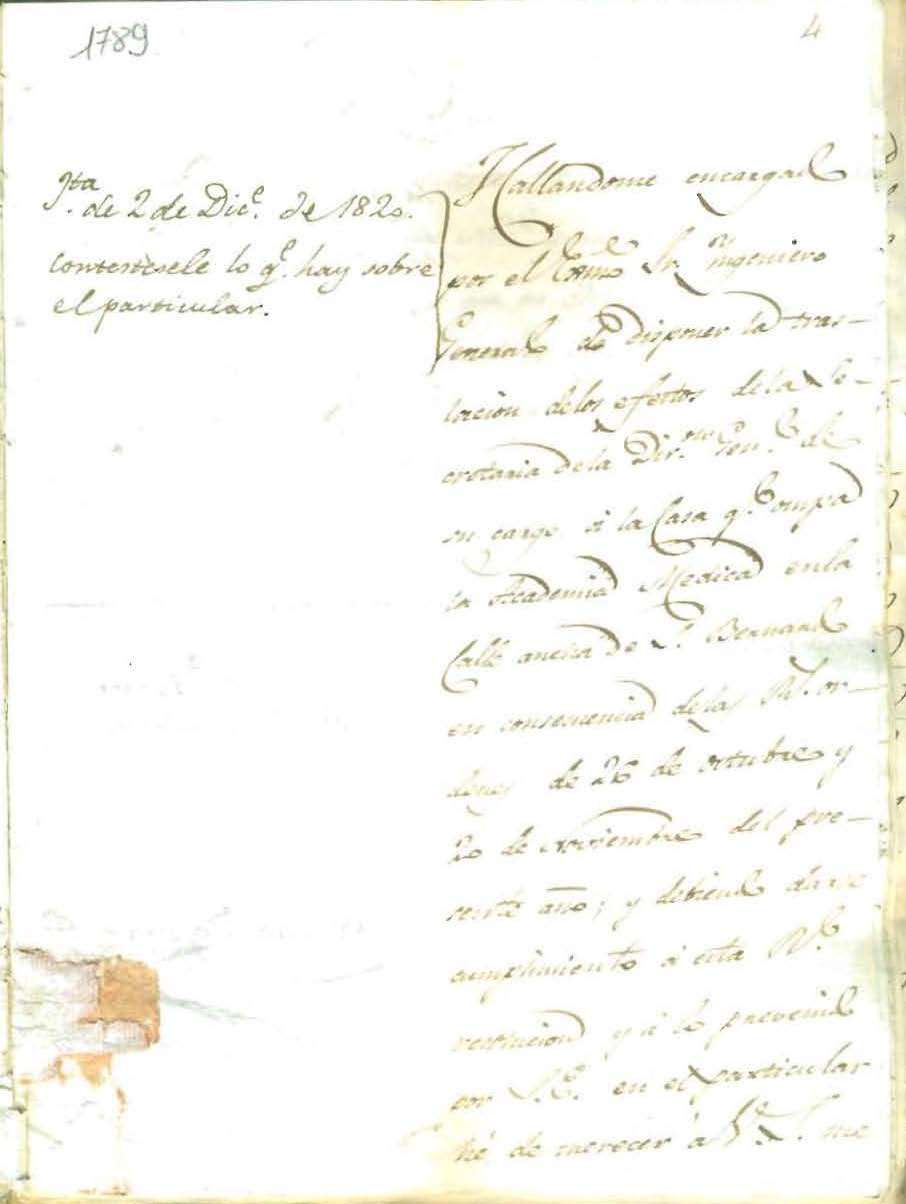 1789
4
Jta de 2 de Dice. de 1820.
Contestesele lo qe. hay sobre
el particular.
Hallandome encargado
por el Exmo. Sr. Yngeniero
General de disponer la tras-
lacion delos efectos dela Se-
cretaria dela Diron. Genl. de
su cargo á la Casa qe. ocupa
la Academia Medica enla
Calle ancha de Sn. Bernardo
en consecuencia delas Rs. or-
denes de 26 de octubre y
20 de Noviembre del pre-
sente año; y debiendo darse
cumplimiento á esta Rl.
resolucion y á lo prevenido
por S.E. en el particular
hé de merecer á V.S. me